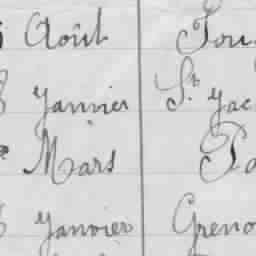 Août Tou
Janvier St. Jac
Mars Pa
Janvier Greno